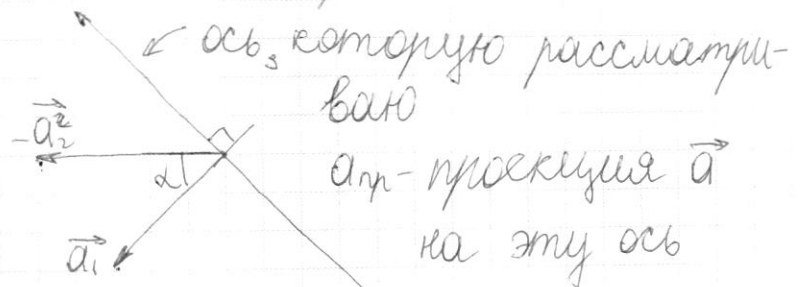 ось, которую рассматри-
ваю
-a⃗₂
α
aпр - проекция a⃗
на эту ось
a⃗₁